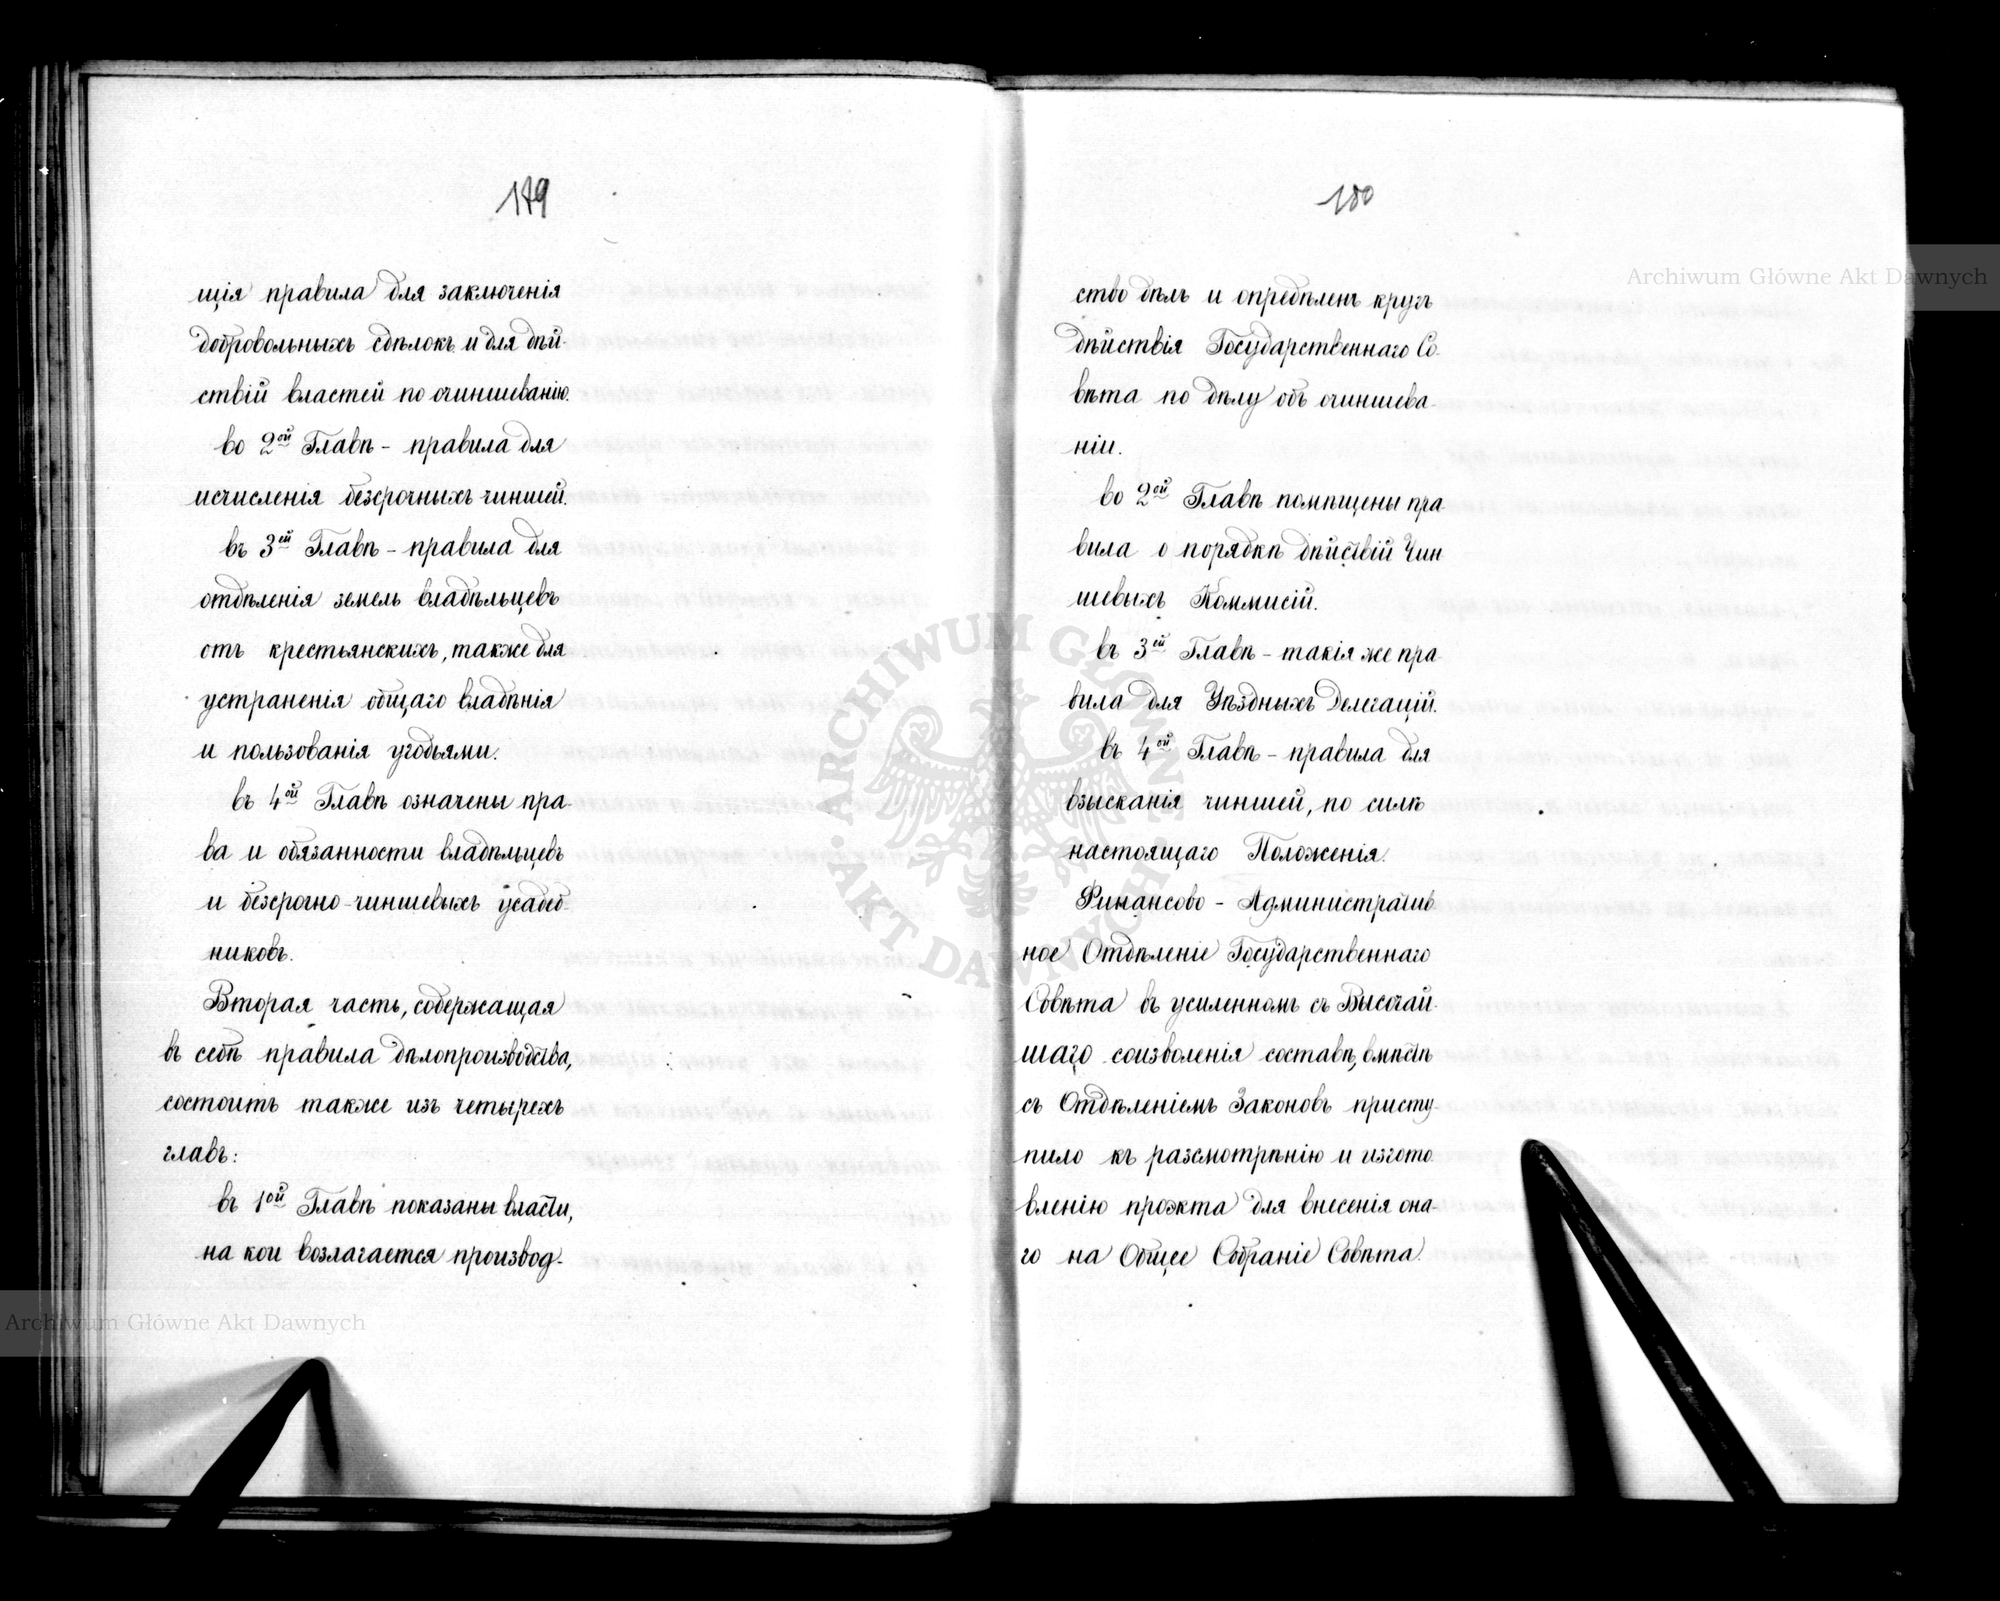 179
щія правила для заключенія
добровольныхъ сдѣлокъ и для дѣй-
ствій властей по очиншеванію.
во 2ой Главѣ - правила для
исчисленія безсрочныхъ чиншей.
въ 3ей Главѣ - правила для
отдѣленія земель владѣльцевъ
отъ крестьянскихъ, также для
устраненія общаго владѣнія
и пользованія угодьями.
въ 4ой Главѣ означены пра-
ва и обязанности владѣльцевъ
и безсрочно-чиншевыхъ усадеб-
никовъ.
Вторая часть, содержащая
въ себѣ правила дѣлопроизводства,
состоитъ также изъ четырехъ
главъ:
въ 1ой Главѣ показаны власти,
на кои возлагается производ-
180
ство дѣлъ и опредѣленъ кругъ
дѣйствія Государственнаго Со-
вѣта по дѣлу объ очиншева-
ніи.
во 2ой Главѣ помѣщены пра-
вила о порядкѣ дѣйствій Чин
шевыхъ Коммисій.
въ 3ей Главѣ - такія же пра-
вила для Уѣздныхъ Делегацій.
въ 4ой Главѣ - правила для
взысканія чиншей, по силѣ
настоящаго Положенія.
Финансово - Административ
ное Отдѣленіе Государственнаго
Совѣта въ усиленномъ съ Высочай-
шаго соизволенія составѣ, вмѣстѣ
съ Отдѣленіемъ Законовъ присту-
пило къ разсмотрѣнію и изгото
вленію проэкта для внесенія она-
го на Общее Собраніе Совѣта.
Archiwum Główne Akt Dawnych
ARCHIWUM GŁÓWNE AKT DAWNYCH
Archiwum Główne Akt Dawnych